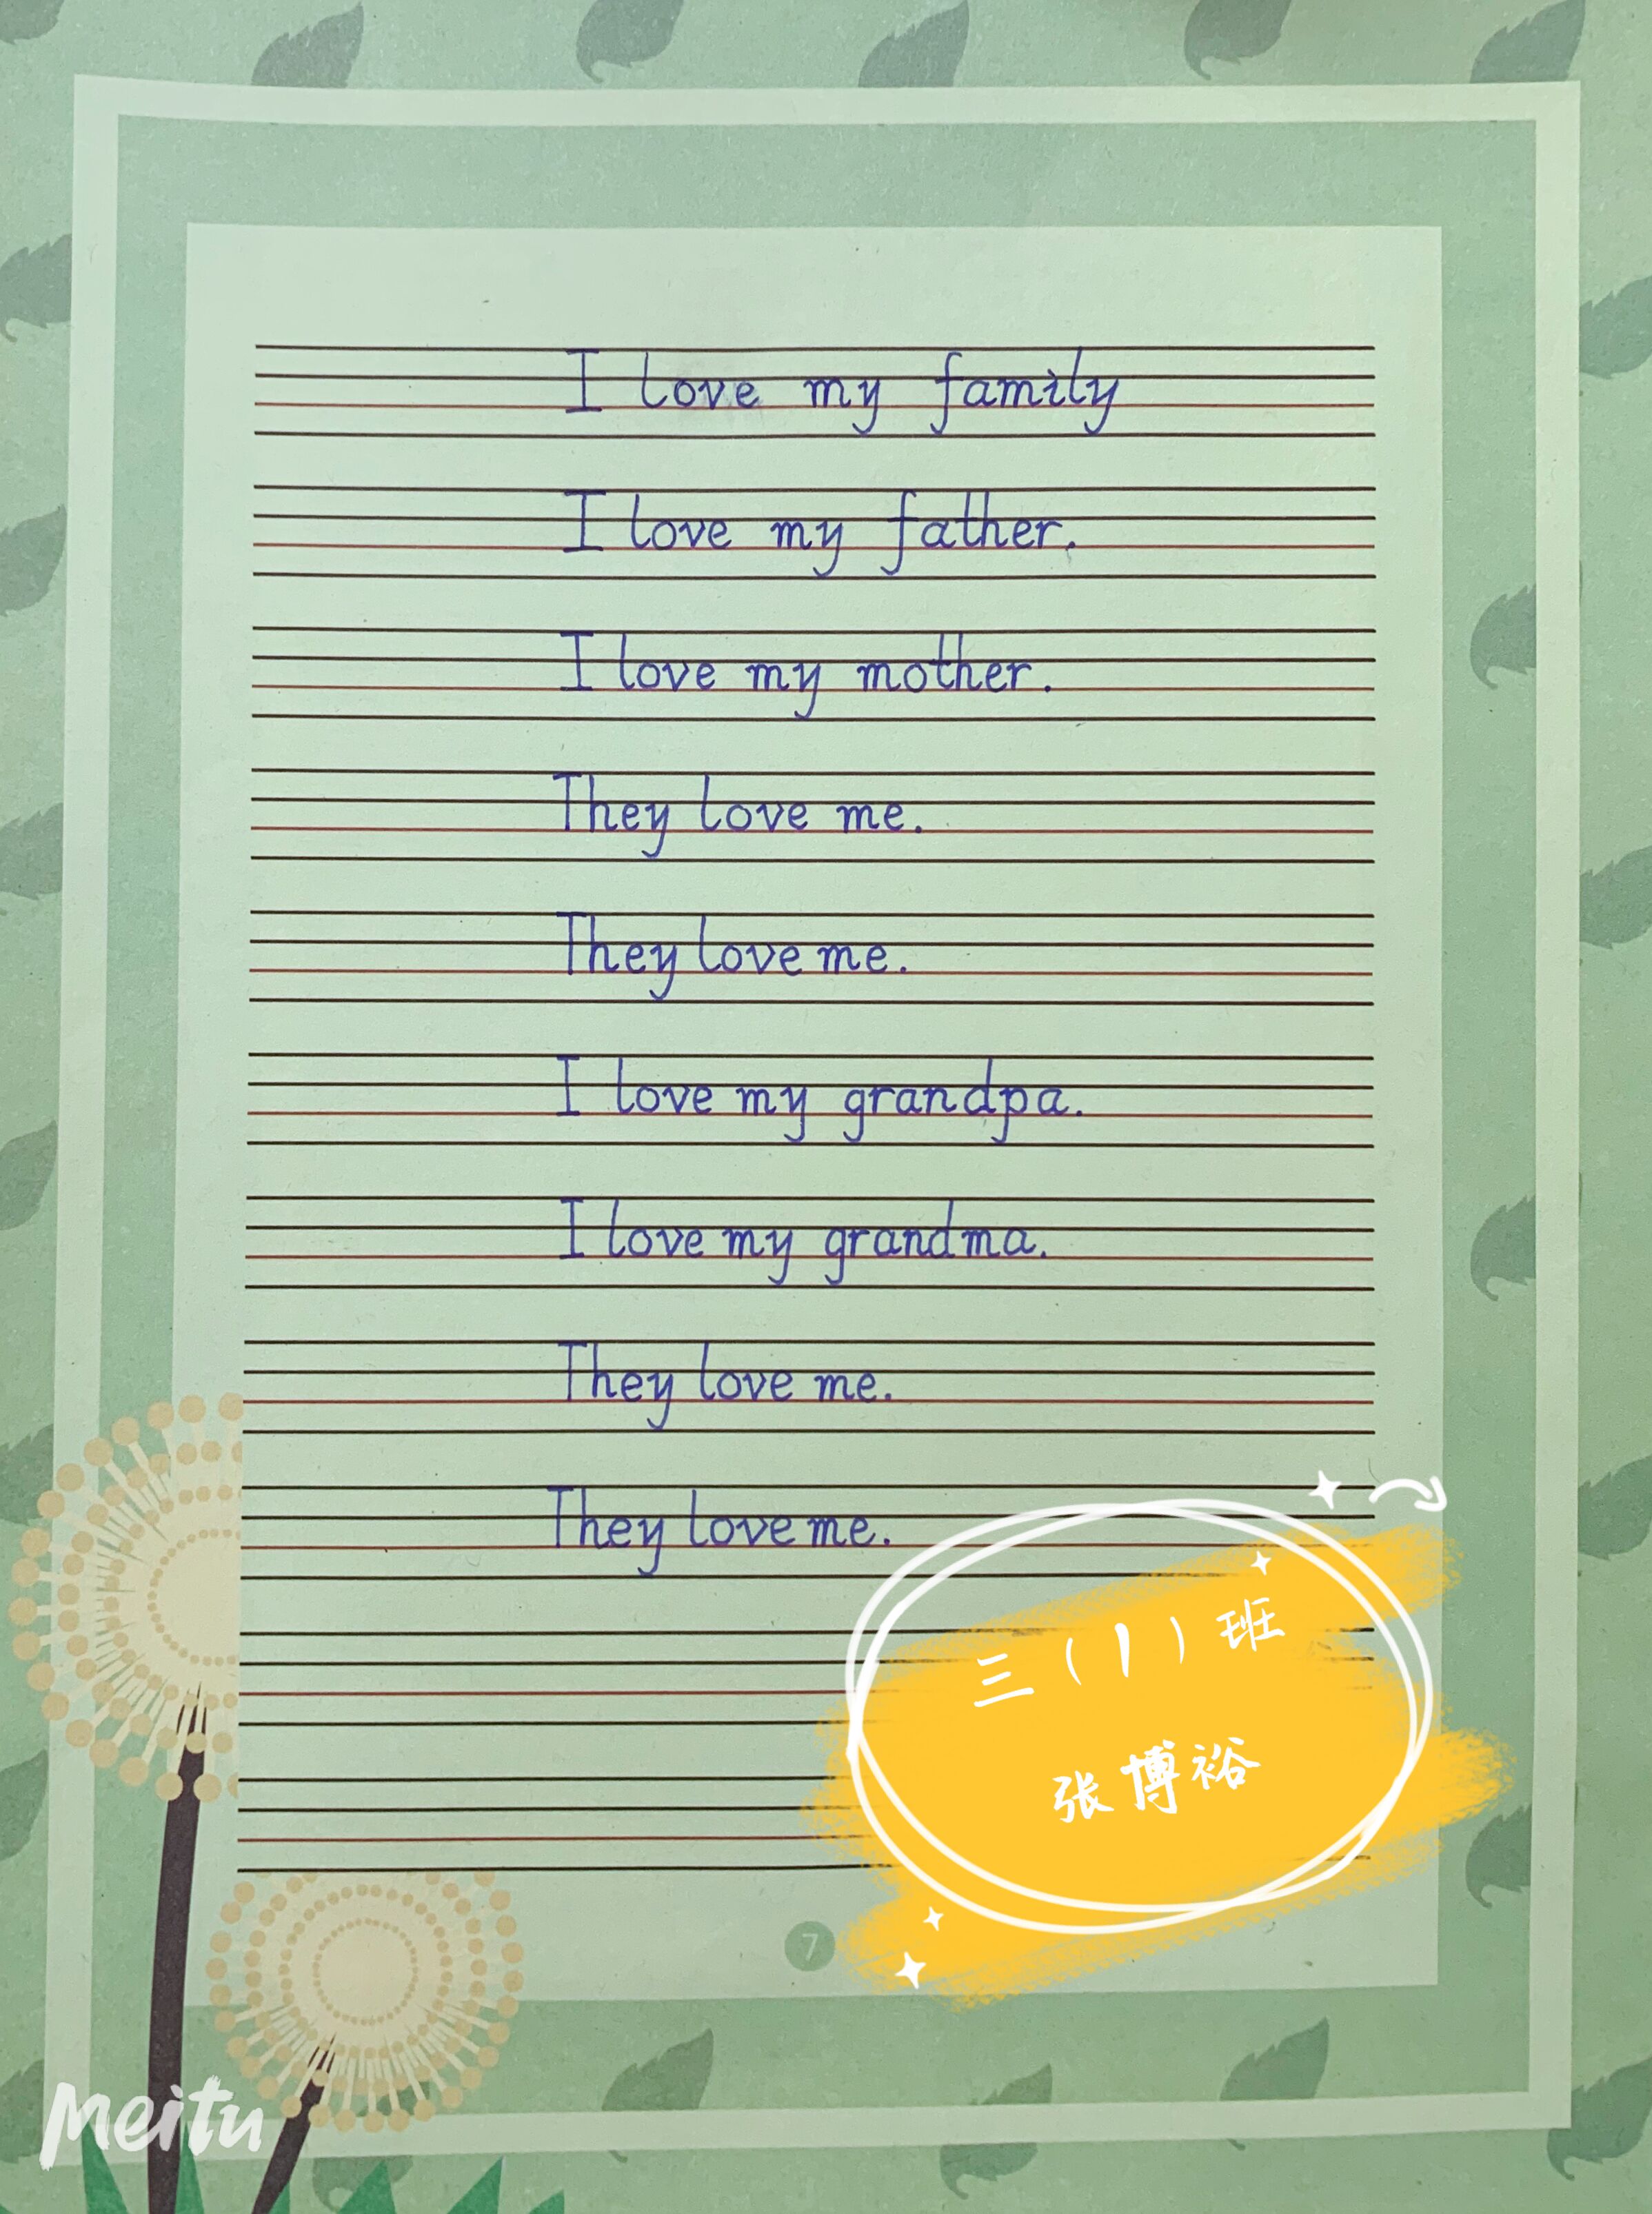 I love my family
I love my father.
I love my mother.
They love me.
They love me.
I love my grandpa.
I love my grandma.
They love me.
They love me.
三（1）班
张博裕
7
Meitu